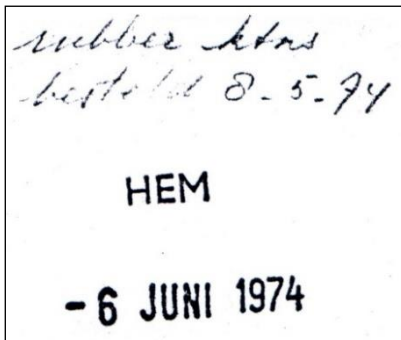 rubber
besteld 8-5-74
HEM
-6 JUNI 1974